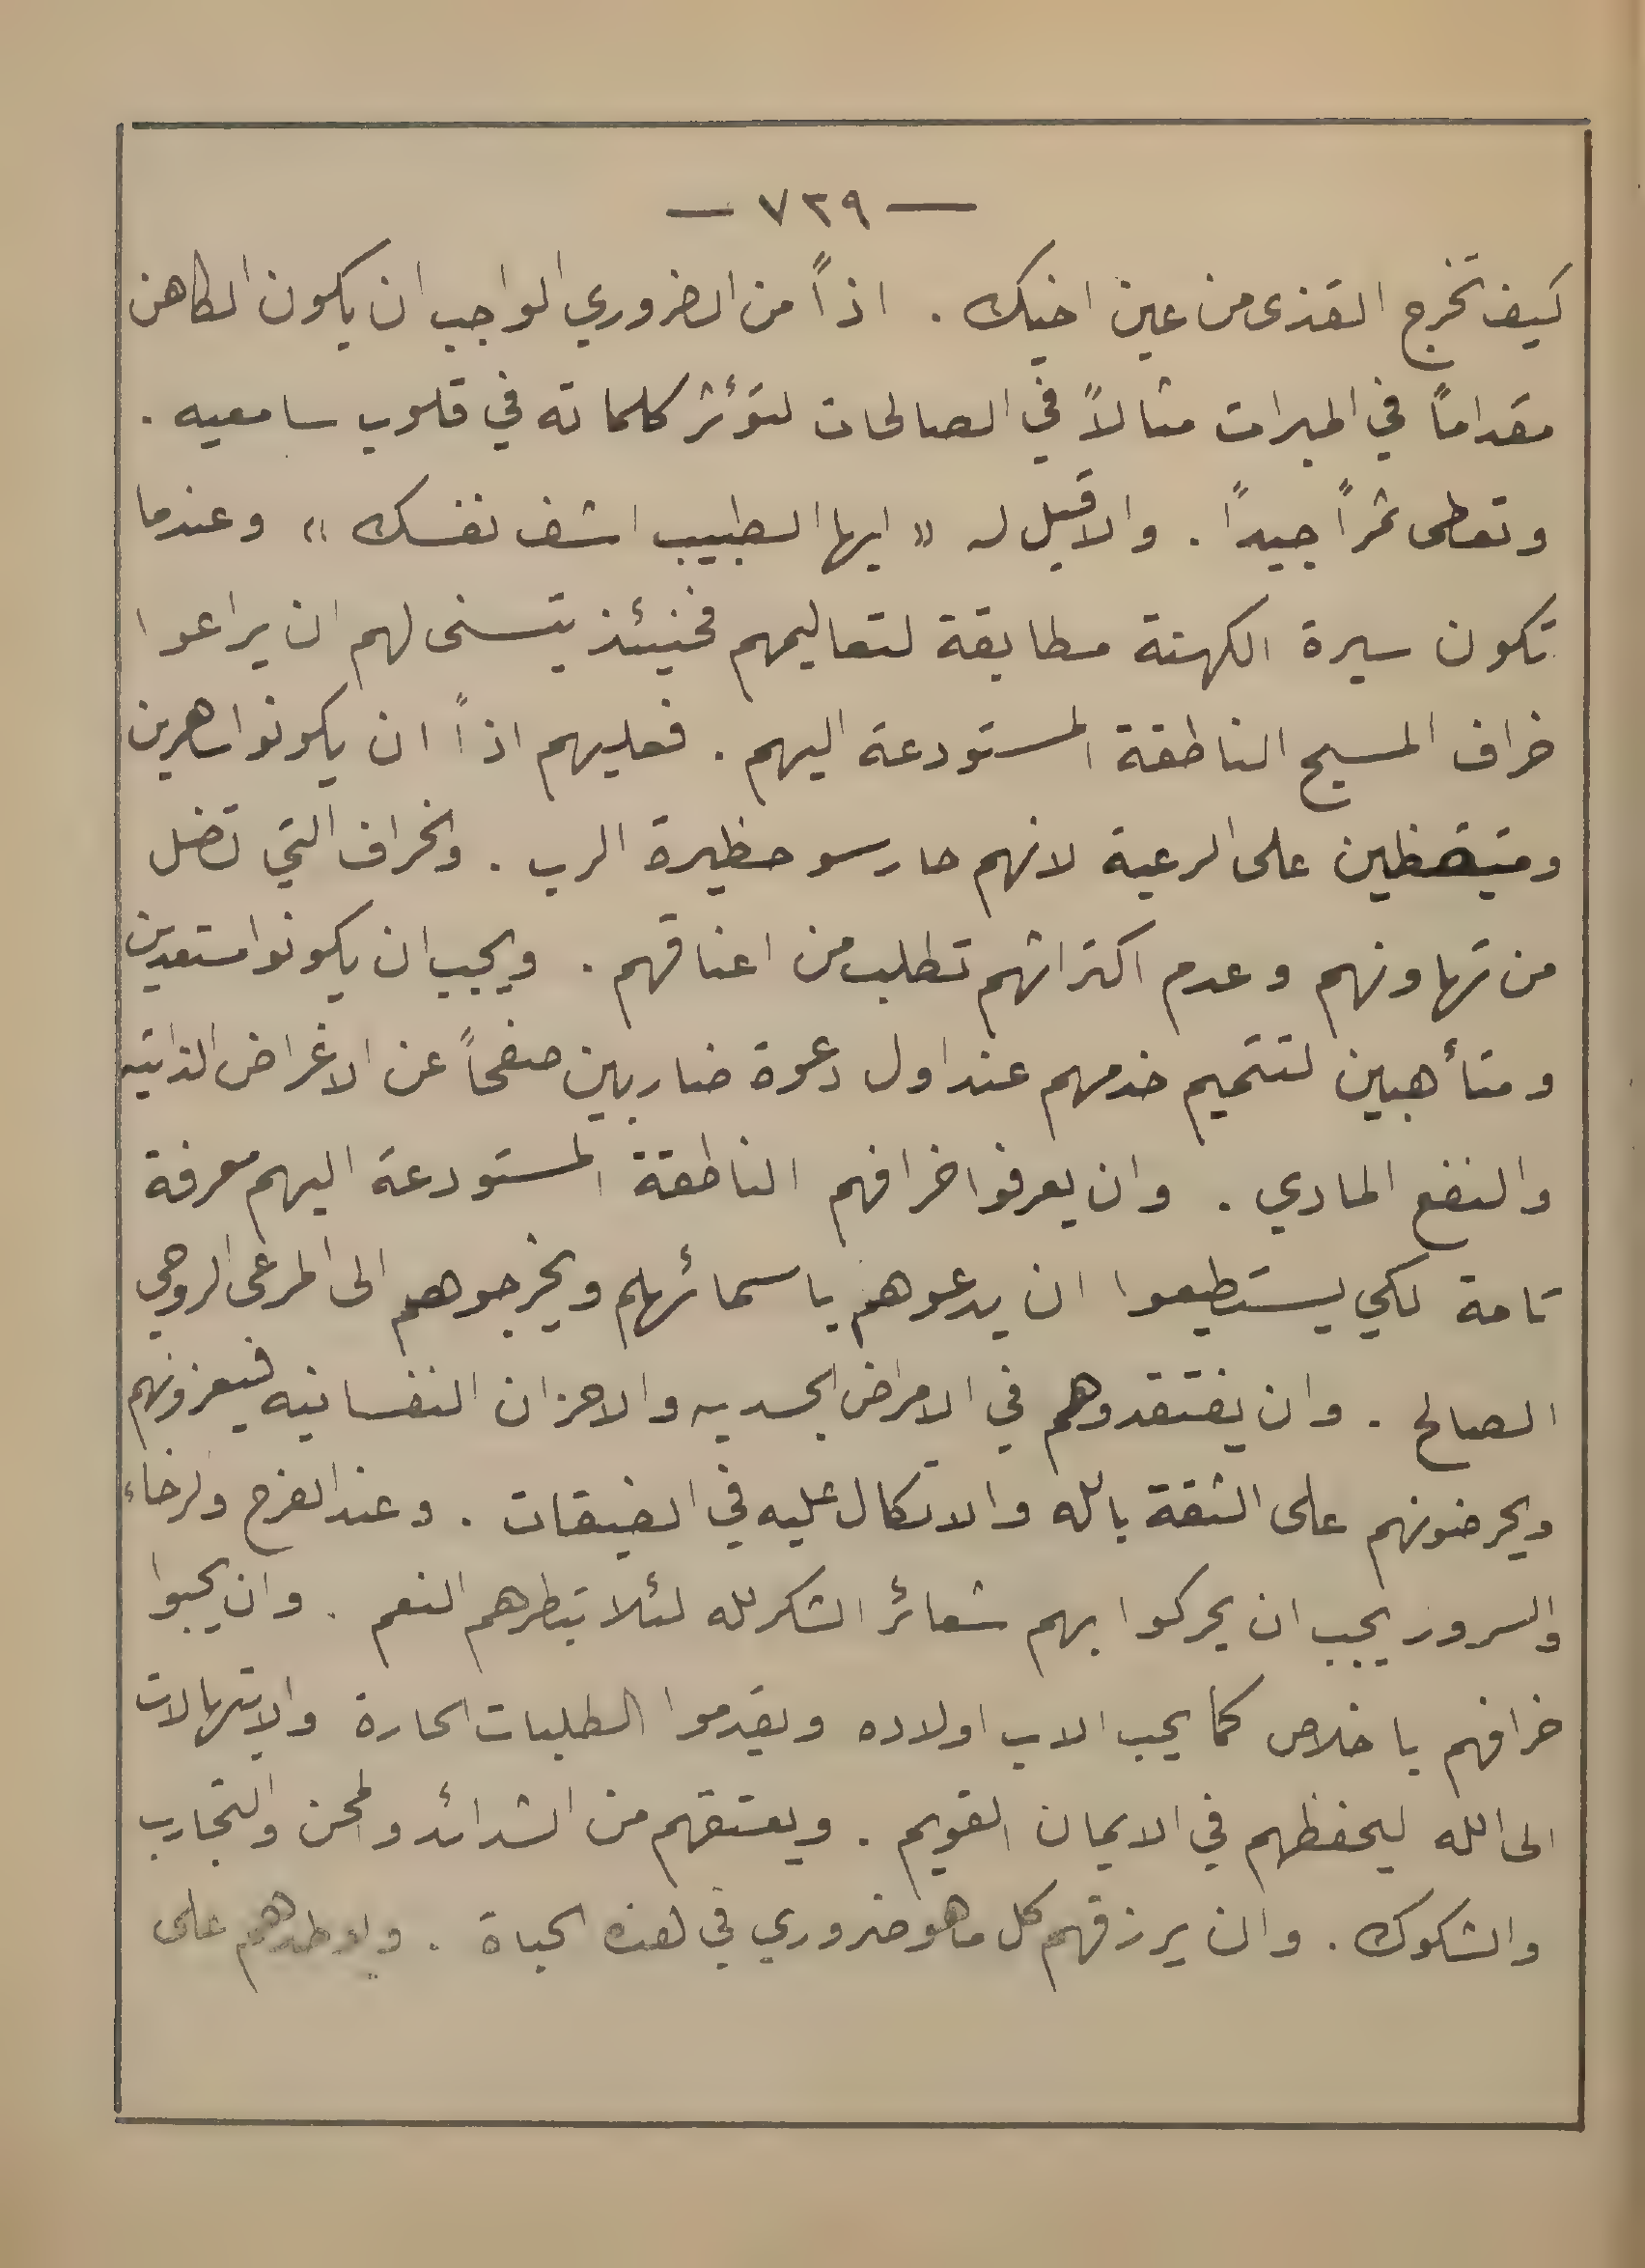 — ٧٢٩ —
كيف تخرج القذى من عين اخيك . اذاً من الضروري الواجب ان يكون الكاهن
مقداماً في المبرات مثالاً في الصالحات لتؤثر كلماته في قلوب سامعيه .
وتعطى ثمراً جيداً . والا قيل له « ايها الطبيب اشف نفسك » وعندما
تكون سيرة الكهنة مطابقة لتعاليمهم فحينئذ يتسنى لهم ان يراعوا
خراف المسيح الناطقة المستودعة اليهم . فعليهم اذاً ان يكونوا ساهرين
ومتيقظين على الرعية لانهم حارسو حظيرة الرب . والخراف التي تضل
من تهاونهم وعدم اكتراثهم تطلب من اعناقهم . ويجب ان يكونوا مستعدين
ومتأهبين لتتميم خدمهم عند اول دعوة ضاربين صفحاً عن الاغراض الذاتيه
والنفع المادي . وان يعرفوا خرافهم الناطقة المستودعة اليهم معرفة
تامة لكي يستطيعوا ان يدعوهم باسمائهم ويخرجوهم الى المرعى الروحي
الصالح . وان يفتقدوهم في الامراض الجسديه والاحزان النفسانيه فيعزونهم
ويحرضونهم على الثقة بالله والاتكال عليه في الضيقات . وعند الفرح والرخاء
والسرور يجب ان يحركوا بهم شعائر الشكر لله لئلا تبطرهم النعم . وان يحبوا
خرافهم باخلاص كما يحب الاب اولاده ويقدموا الطلبات الحارة والابتهالات
الى الله ليحفظهم في الايمان القويم . ويعتقهم من الشدائد والمحن والتجارب
والشكوك . وان يرزقهم كل ما هو ضروري في هذه الحياة . ويوطدهم على